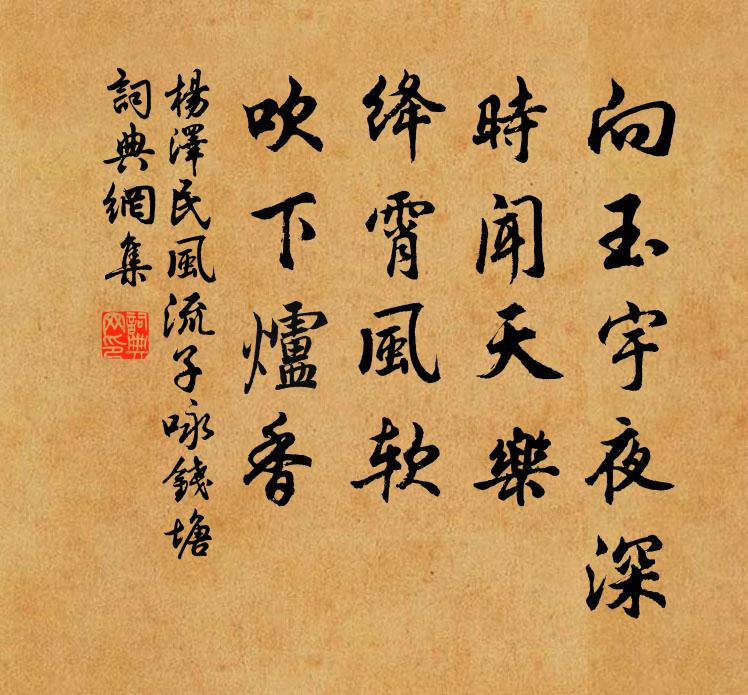 向玉宇夜深
時聞天樂
絳霄風软
吹下爐香
楊澤民風流子咏錢塘
詞典網集
詞典網印